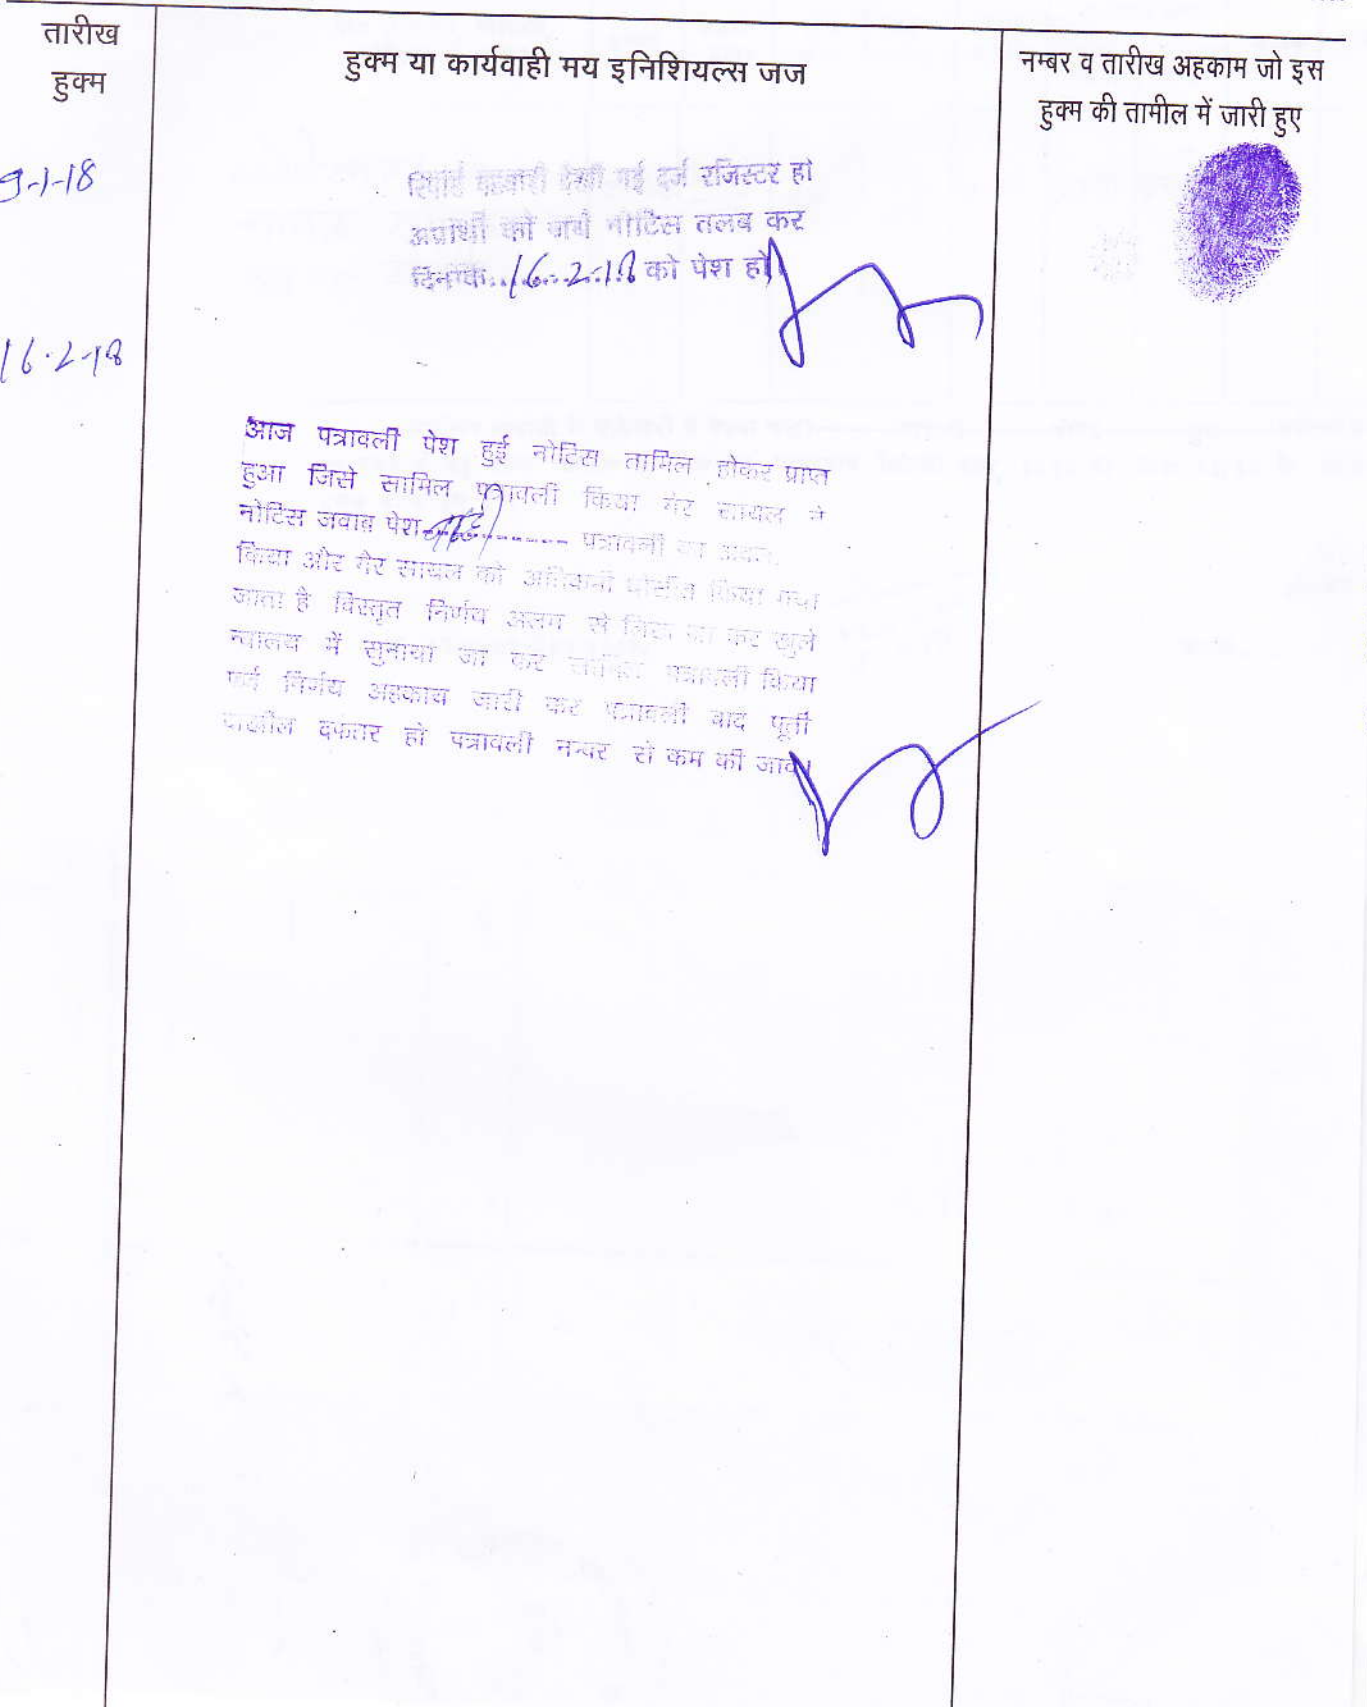 तारीख
हुक्म
हुक्म या कार्यवाही मय इनिशियल्स जज
नम्बर व तारीख अहकाम जो इस
हुक्म की तामील में जारी हुए
9-1-18
रिपोर्ट देखी गई दर्ज रजिस्टर हो
अप्रार्थी को नोटिस तलब कर
दिनांक..16.2.18 को पेश हो
16.2-18
आज पत्रावली पेश हुई नोटिस तामिल होकर प्राप्त
हुआ जिसे सामिल पत्रावली किया गैर सायल ने
नोटिस जवाब पेश ---------- पत्रावली का
किया और गैर सायल को अतिक्रमी घोषित किया गया
जाता है विस्तृत निर्णय अलग से लिखा जा कर खुले
न्यालय में सुनाया जा कर सामिल पत्रावली किया
निर्णय अहकाम जारी कर पत्रावली बाद पूर्ती
दाखील दफतर हो पत्रावली नम्बर से कम की जावे।